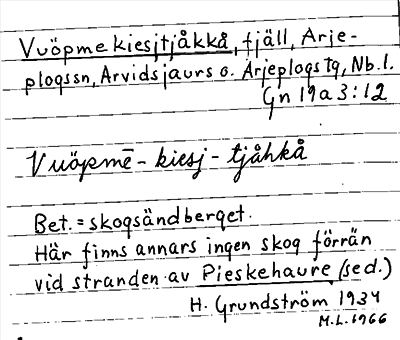 Vuöpmekiesjtjåkkå, fjäll, Arje-
plogssn, Arvidsjaurs o. Arjeplogs tg, Nb.l.
Gn 19a3:12
Vuöpmē-kiesj-tjåhkå
Bet. = skogsändberget.
Här finns annars ingen skog förrän
vid stranden av Pieskehaure (se d.)
H. Grundström 1934
M.L. 1966